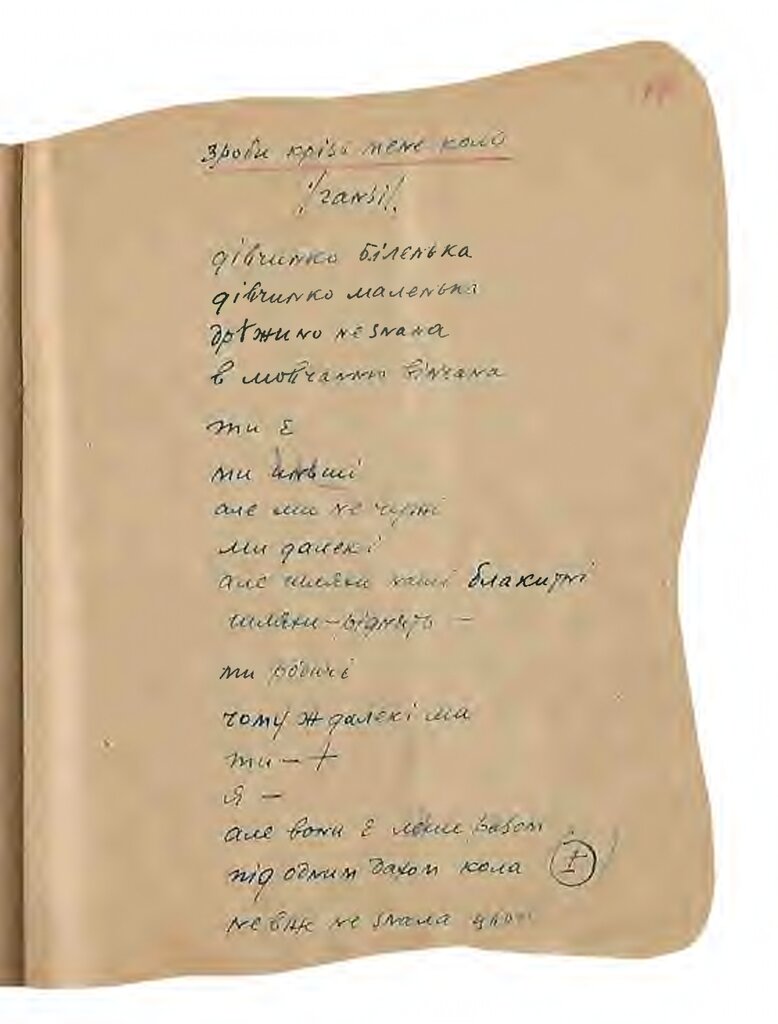 зроби крізь мене коло
/гамзі/
дівчинко біленька
дівчинко маленька
дружино незнана
в мовчанню вінчана
ти є
ми
але ми не чужі
ми далекі
але шляхи наші блакитні
шляхи – ріднять –
ми родичі
чому ж далекі ми
ти – +
я –
але вони є лише разом
під одним дахом кола ±
невже не знала цього